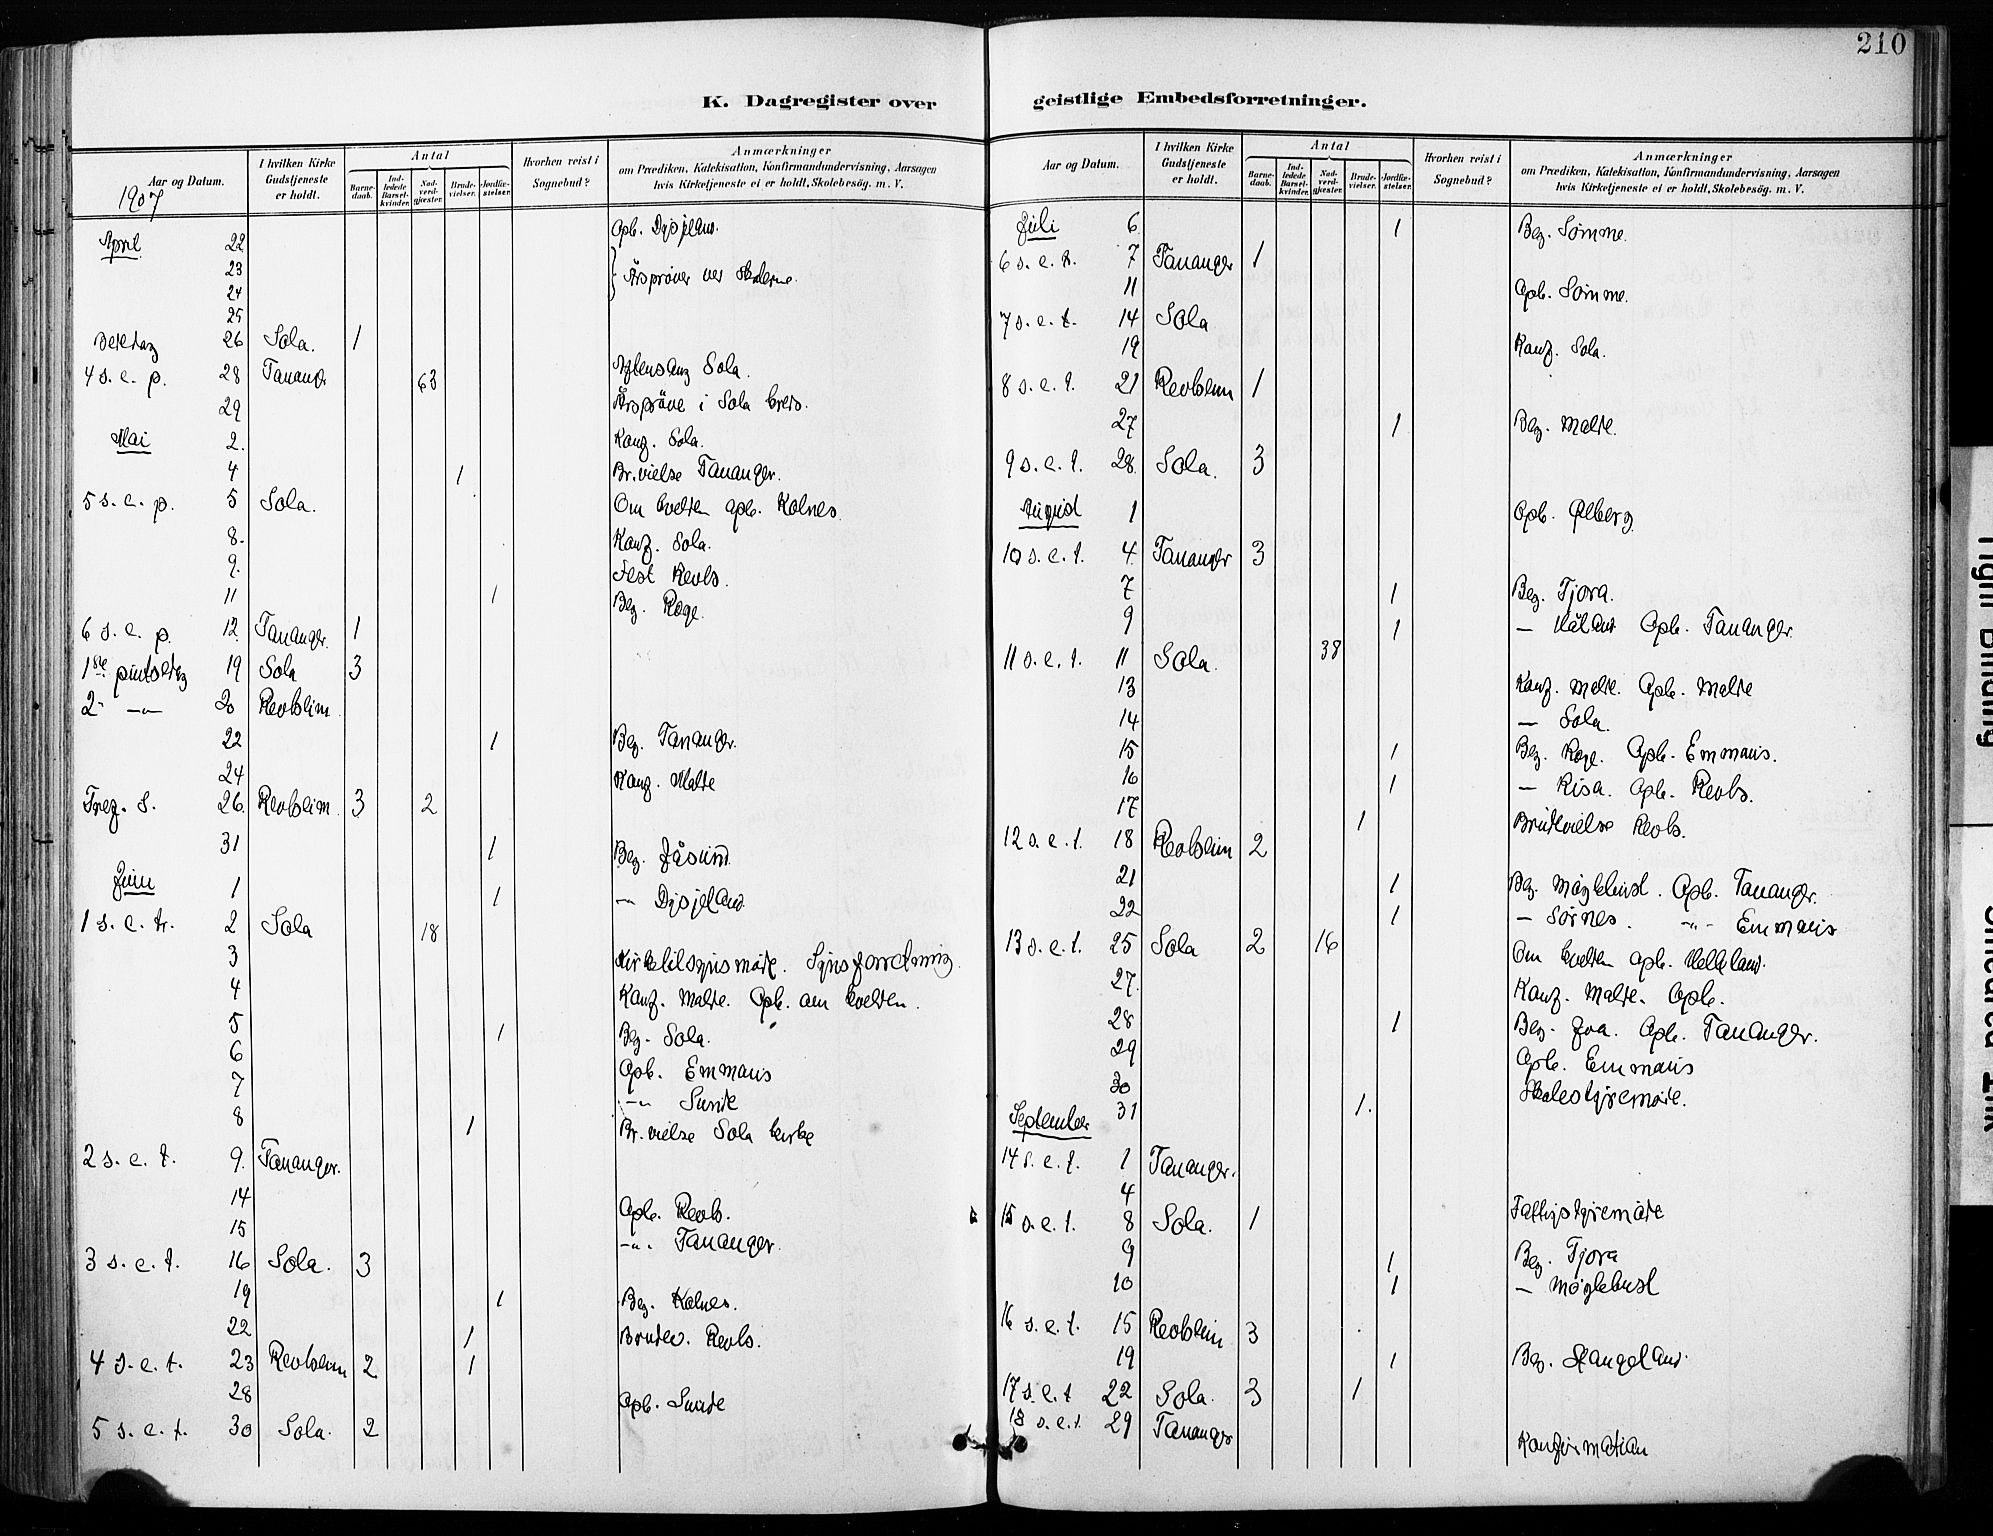 210
K. Dagregister over
geistlige Embedsforretninger.
Aar og Datum.
I hvilken Kirke Gudstjeneste er holdt.
Antal
Barne-daab.
Ind-ledede Barsel-kvinder.
Nad-verd-gjæster.
Brude-vielser.
Jordfæ-stelser.
Hvorhen reist i Sognebud?
Anmærkninger
om Prædiken, Katekisation, Konfirmandundervisning, Aarsagen
hvis Kirketjeneste ei er holdt, Skolebesøg. m. V.
1907
April 22 Opb. Dysjeland.
23
24 Årsprøver ved skolerne.
25
26 Sola. 1
4 s. e. p. 28 Tananger 63 Aftensang Sola.
29 Årsprøve i Sola kreds.
Mai 2. Konf. Sola.
4 1 Br.vielse Tananger.
5 s. e. p. 5 Sola. Om kvelden opb. Kolnes.
8. Konf. Sola.
9. Fest Revh.
11 1 Beg. Røge.
6 s. e. p. 12. Tananger. 1
1ste pintsedag 19 Sola 3
2- -"- 20 Revheim.
22 1 Beg. Tananger.
24 Konf. Malde
Tref. s. 26. Revheim. 3 2
31 1 Beg. Jåsund.
Juni 1 1 -"- Dysjeland.
1 s. e. tr. 2 Sola 18
3 Kirketilsynsmøde. Synsforretning.
4 Konf. Malde. Opb. om kvelden.
5 1 Beg. Sola.
6 Opb. Emmaus
7 -"- Sunde
8 1 Br.vielse Sola kirke
2 s. e. t. 9. Tananger.
14 Opb. Revh.
15 -"- Tananger.
3 s. e. t. 16 Sola. 3
19 1 Beg. Kolnes.
22 1 Brudev. Revh.
4 s. e. t. 23 Revheim 2 1
28 Opb. Sunde
5 s. e. t. 30 Sola. 2
Aar og Datum.
I hvilken Kirke Gudstjeneste er holdt.
Antal
Barne-daab.
Ind-ledede Barsel-kvinder.
Nad-verd-gjæster.
Brude-vielser.
Jordfæ-stelser.
Hvorhen reist i Sognebud?
Anmærkninger
om Prædiken, Katekisation, Konfirmandundervisning, Aarsagen
hvis Kirketjeneste ei er holdt, Skolebesøg. m. V.
Juli 6 1 Beg. Sømme.
6 s. e. t. 7 Tananger 1
11 Opb. Sømme.
7 s. e. t. 14 Sola
19 Konf. Sola.
8 s. e. t. 21 Revheim 1
27 1 Beg. Malde.
9 s. e. t. 28. Sola. 3
August 1 Opb. Ølberg
10 s. e. t. 4. Tananger 3
7 1 Beg. Tjora.
9 1 — Håland Opb. Tananger.
11 s. e. t. 11 Sola. 38
13 Konf. Malde. Opb. Malde
14 — Sola.
15 1 Beg. Røge. Opb. Emmaus.
16 1 — Risa. Opb. Revh.
17 1 Brudevielse Revh.
12 s. e. t. 18 Revheim 2
21 1 Beg. Møglehust. Opb. Tananger.
22 1 — Sørnes. -"- Emmaus
13 s. e. t. 25 Sola 2 16 Om kvelden opb. Helleland.
27. Konf. Malde. Opb.
28 1 Beg. Joa. Opb. Tananger.
29 Opb. Emmaus
30 Skolestyremøde.
31 1.
September
14 s. e. t. 1 Tananger.
4 Fattigstyremøde
15 s. e. t. 8 Sola. 1
9 1 Beg. Tjora
10 1 — Møglehust
16 s. e. t. 15 Revheim 3
19 1 Beg. Stangeland.
17 s. e. t. 22 Sola. 3 1
18 s. e. t. 29 Tananger Konfirmation